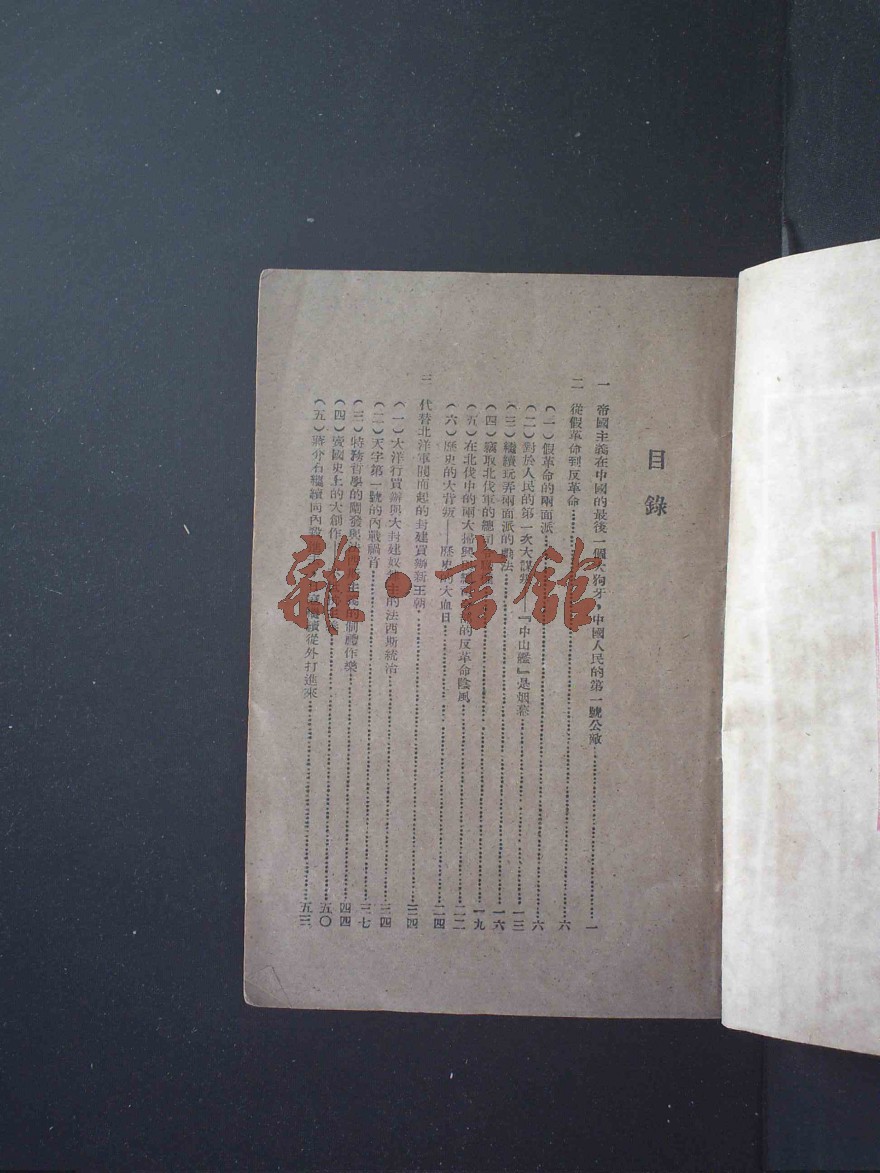 目錄
一 帝國主義在中國的最後一個大狗牙，中國人民的第一號公敵…一
二 從假革命到反革命…六
（一）假革命的兩面派…六
（二）對於人民的第一次大謀叛——『中山艦』是烟幕…一三
（三）繼續玩弄兩面派的勵法…一六
（四）竊取北伐軍的總司…一九
（五）在北伐中的兩大掃興…的反革命陰風…二二
（六）歷史的大背叛——歷史的大血日…二四
三 代替北洋軍閥而起的封建買辦新王朝…三四
（一）大洋行買辦與大封建奴…主的法西斯統治…三四
（二）天字第一號的內戰禍首…三七
（三）特務哲學的闡發與法…主義的制禮作樂…四四
（四）賣國史上的大創作…五〇
（五）蔣介石繼續向內…繼續從外打進來…五三
雜·書館